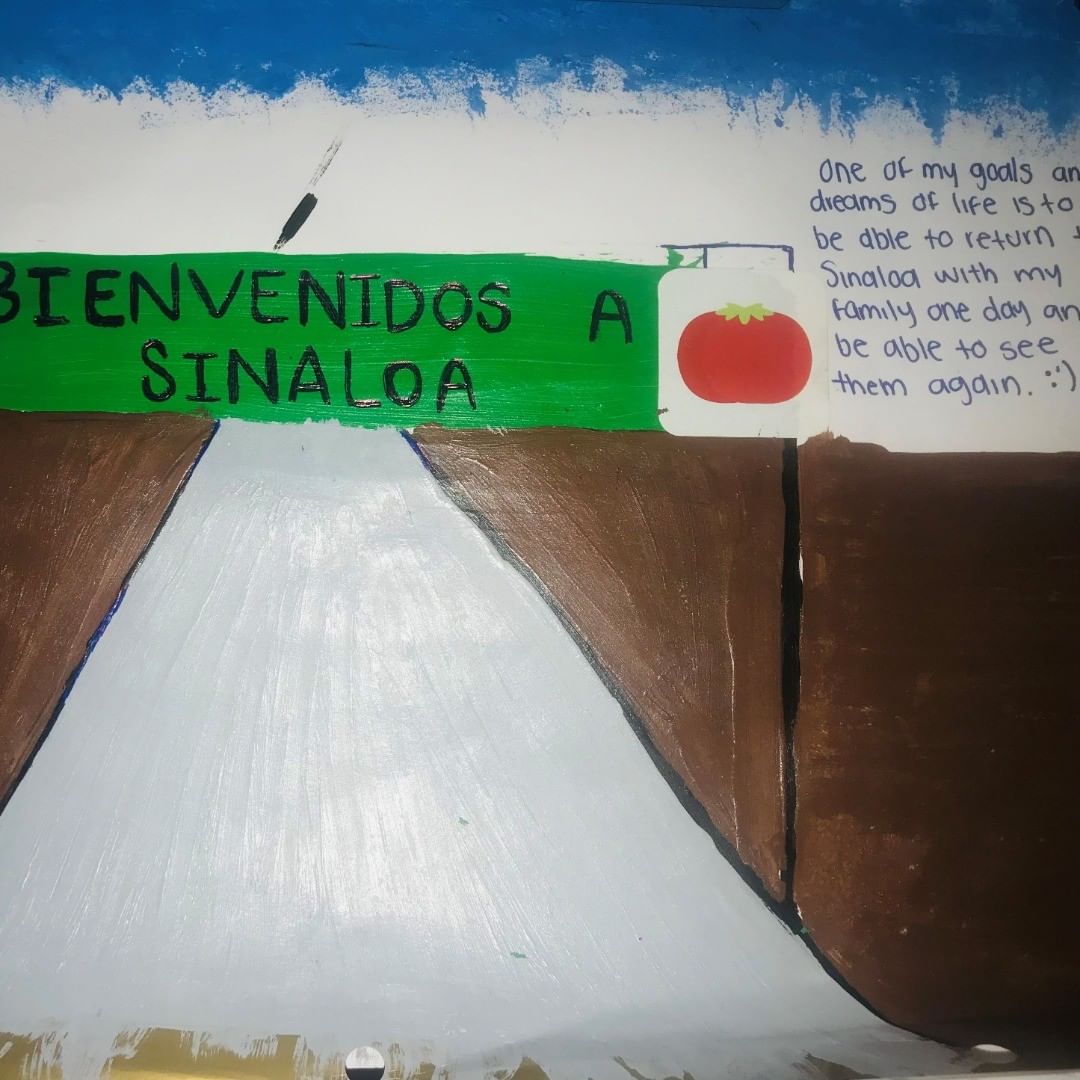 BIENVENIDOS A
SINALOA
One of my goals an
dreams of life is to
be able to return t
Sinaloa with my
family one day an
be able to see
them again. :')